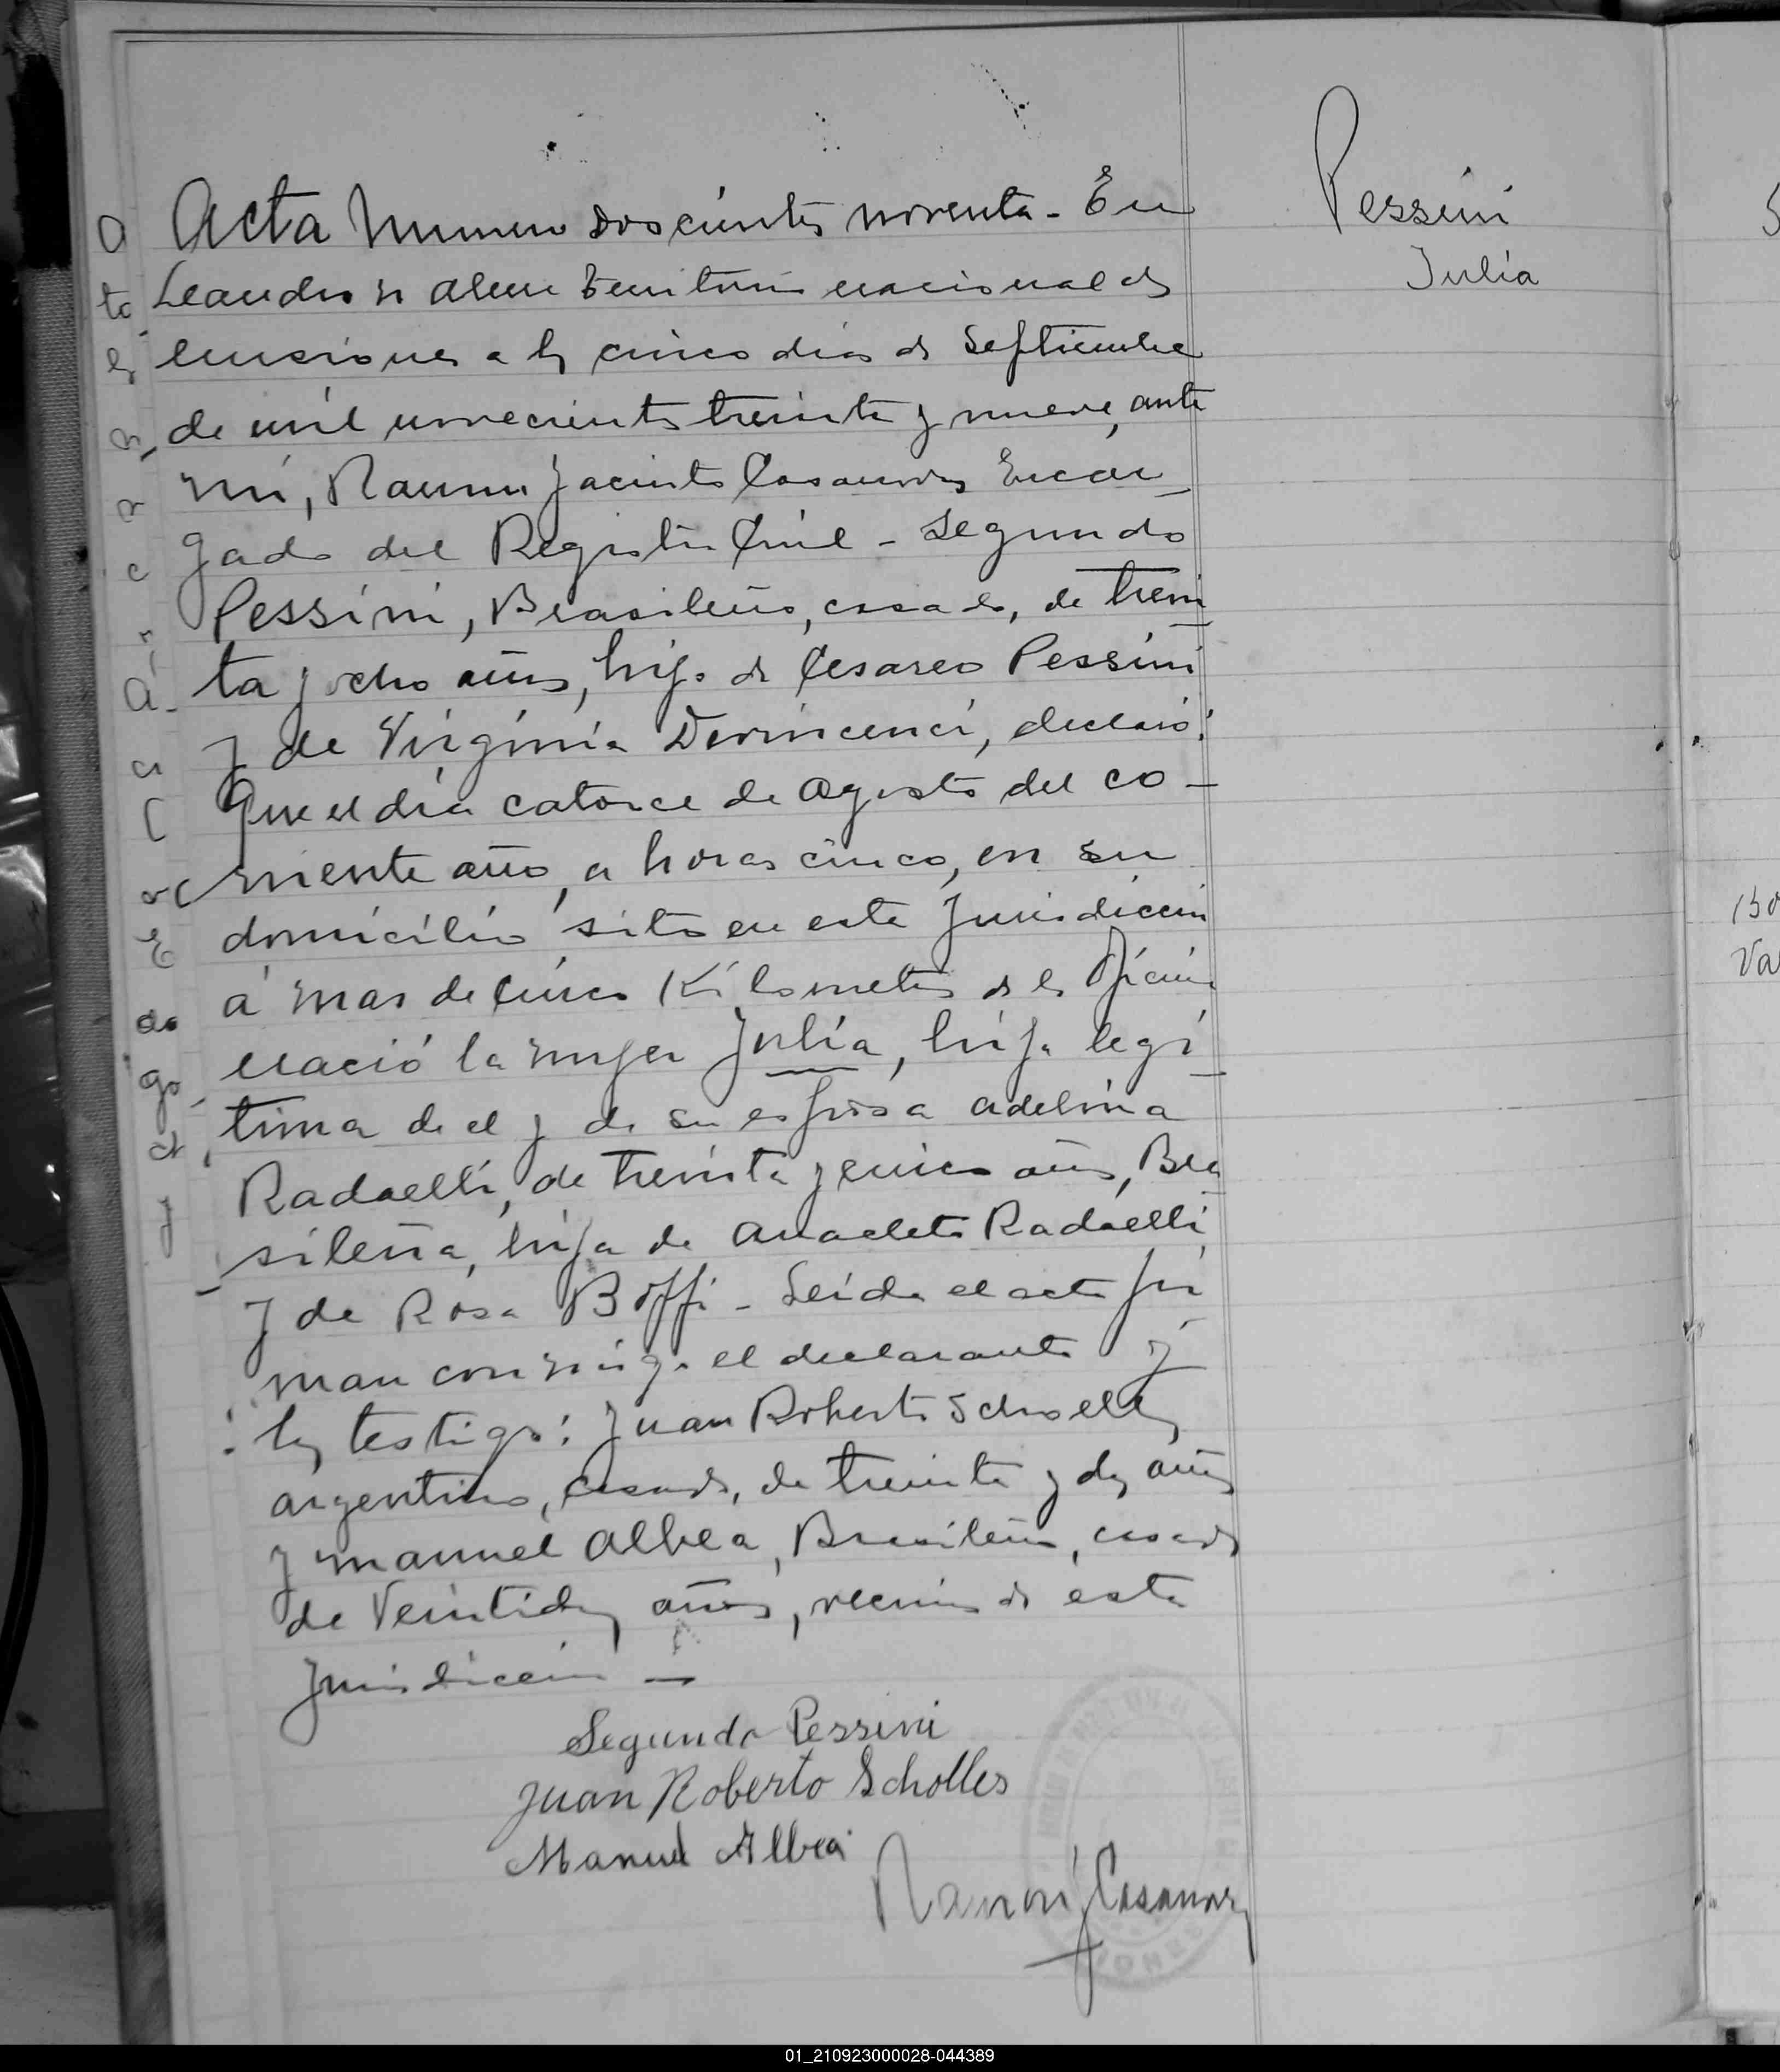 Acta Numero doscientos noventa - En
Leandro N Alem Territorio nacional de
Misiones a los cinco dias de Septiembre
de mil novecientos treinta y nueve, ante
mi, Ramon Jacinto Casanovas Encar_
gado del Registro Civil - Segundo
Pessini, Brasileño, casado, de trein_
ta y ocho años, hijo de Cesareo Pessini
y de Virginia Devincenci, declaró:
Que el dia catorce de Agosto del co-
rriente año, a horas cinco, en su
domicilio sito en esta Jurisdiccion
á mas de cinco Kilometros de la Oficina
nació la mujer Julia, hija legi_
tima de el y de su esposa Adelina
Radaelli, de treinta y cinco años, Bra_
sileña, hija de Anacleto Radaelli
y de Rosa Boffi - Leida el acta fir
man conmigo el declarante y
los testigos: Juan Roberto Scholles
argentino, casado, de treinta y dos años
y Manuel Albea, Brasileño, casado
de Veintidos años, vecinos de esta
Jurisdiccion -
Segundo Pessini
Juan Roberto Scholles
Manuel Albea
Ramon J Casanovas
Pessini
Julia
01_210923000028-044389